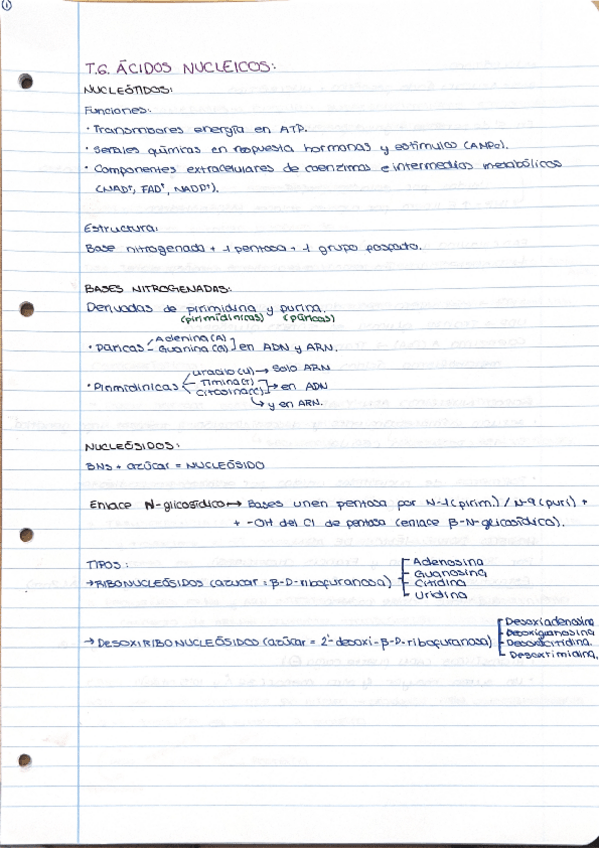 1
T.6. ÁCIDOS NUCLEICOS:
NUCLEÓTIDOS:
Funciones:
· Transmisores energía en ATP.
· Señales químicas en respuesta hormonas y estímulos (AMPc).
· Componentes extracelulares de coenzimas e intermedios metabólicos
(NAD⁺, FAD⁺, NADP⁺).
Estructura:
Base nitrogenada + 1 pentosa + 1 grupo fosfato.
BASES NITROGENADAS:
Derivadas de pirimidina y purina.
(pirimidínicas) (púricas)
· Púricas Adenina (A)
Guanina (G) en ADN y ARN.
· Pirimidínicas Uracilo (U) → Solo ARN
Timina (T) → en ADN
Citosina (C)
↳ y en ARN.
NUCLEÓSIDOS:
BNs + azúcar = NUCLEÓSIDO
Enlace N-glicosídico → Bases unen pentosa por N-1 (pirim.) / N-9 (puri) +
+ -OH del C1 de pentosa (enlace β-N-glicosídico).
TIPOS:
→ RIBONUCLEÓSIDOS (azucar = β-D-ribofuranosa) Adenosina
Guanosina
Citidina
Uridina
→ DESOXIRIBONUCLEÓSIDOS (azúcar = 2'-desoxi-β-D-ribofuranosa) Desoxiadenosina
Desoxiguanosina
Desoxicitidina.
Desoxitimidina.